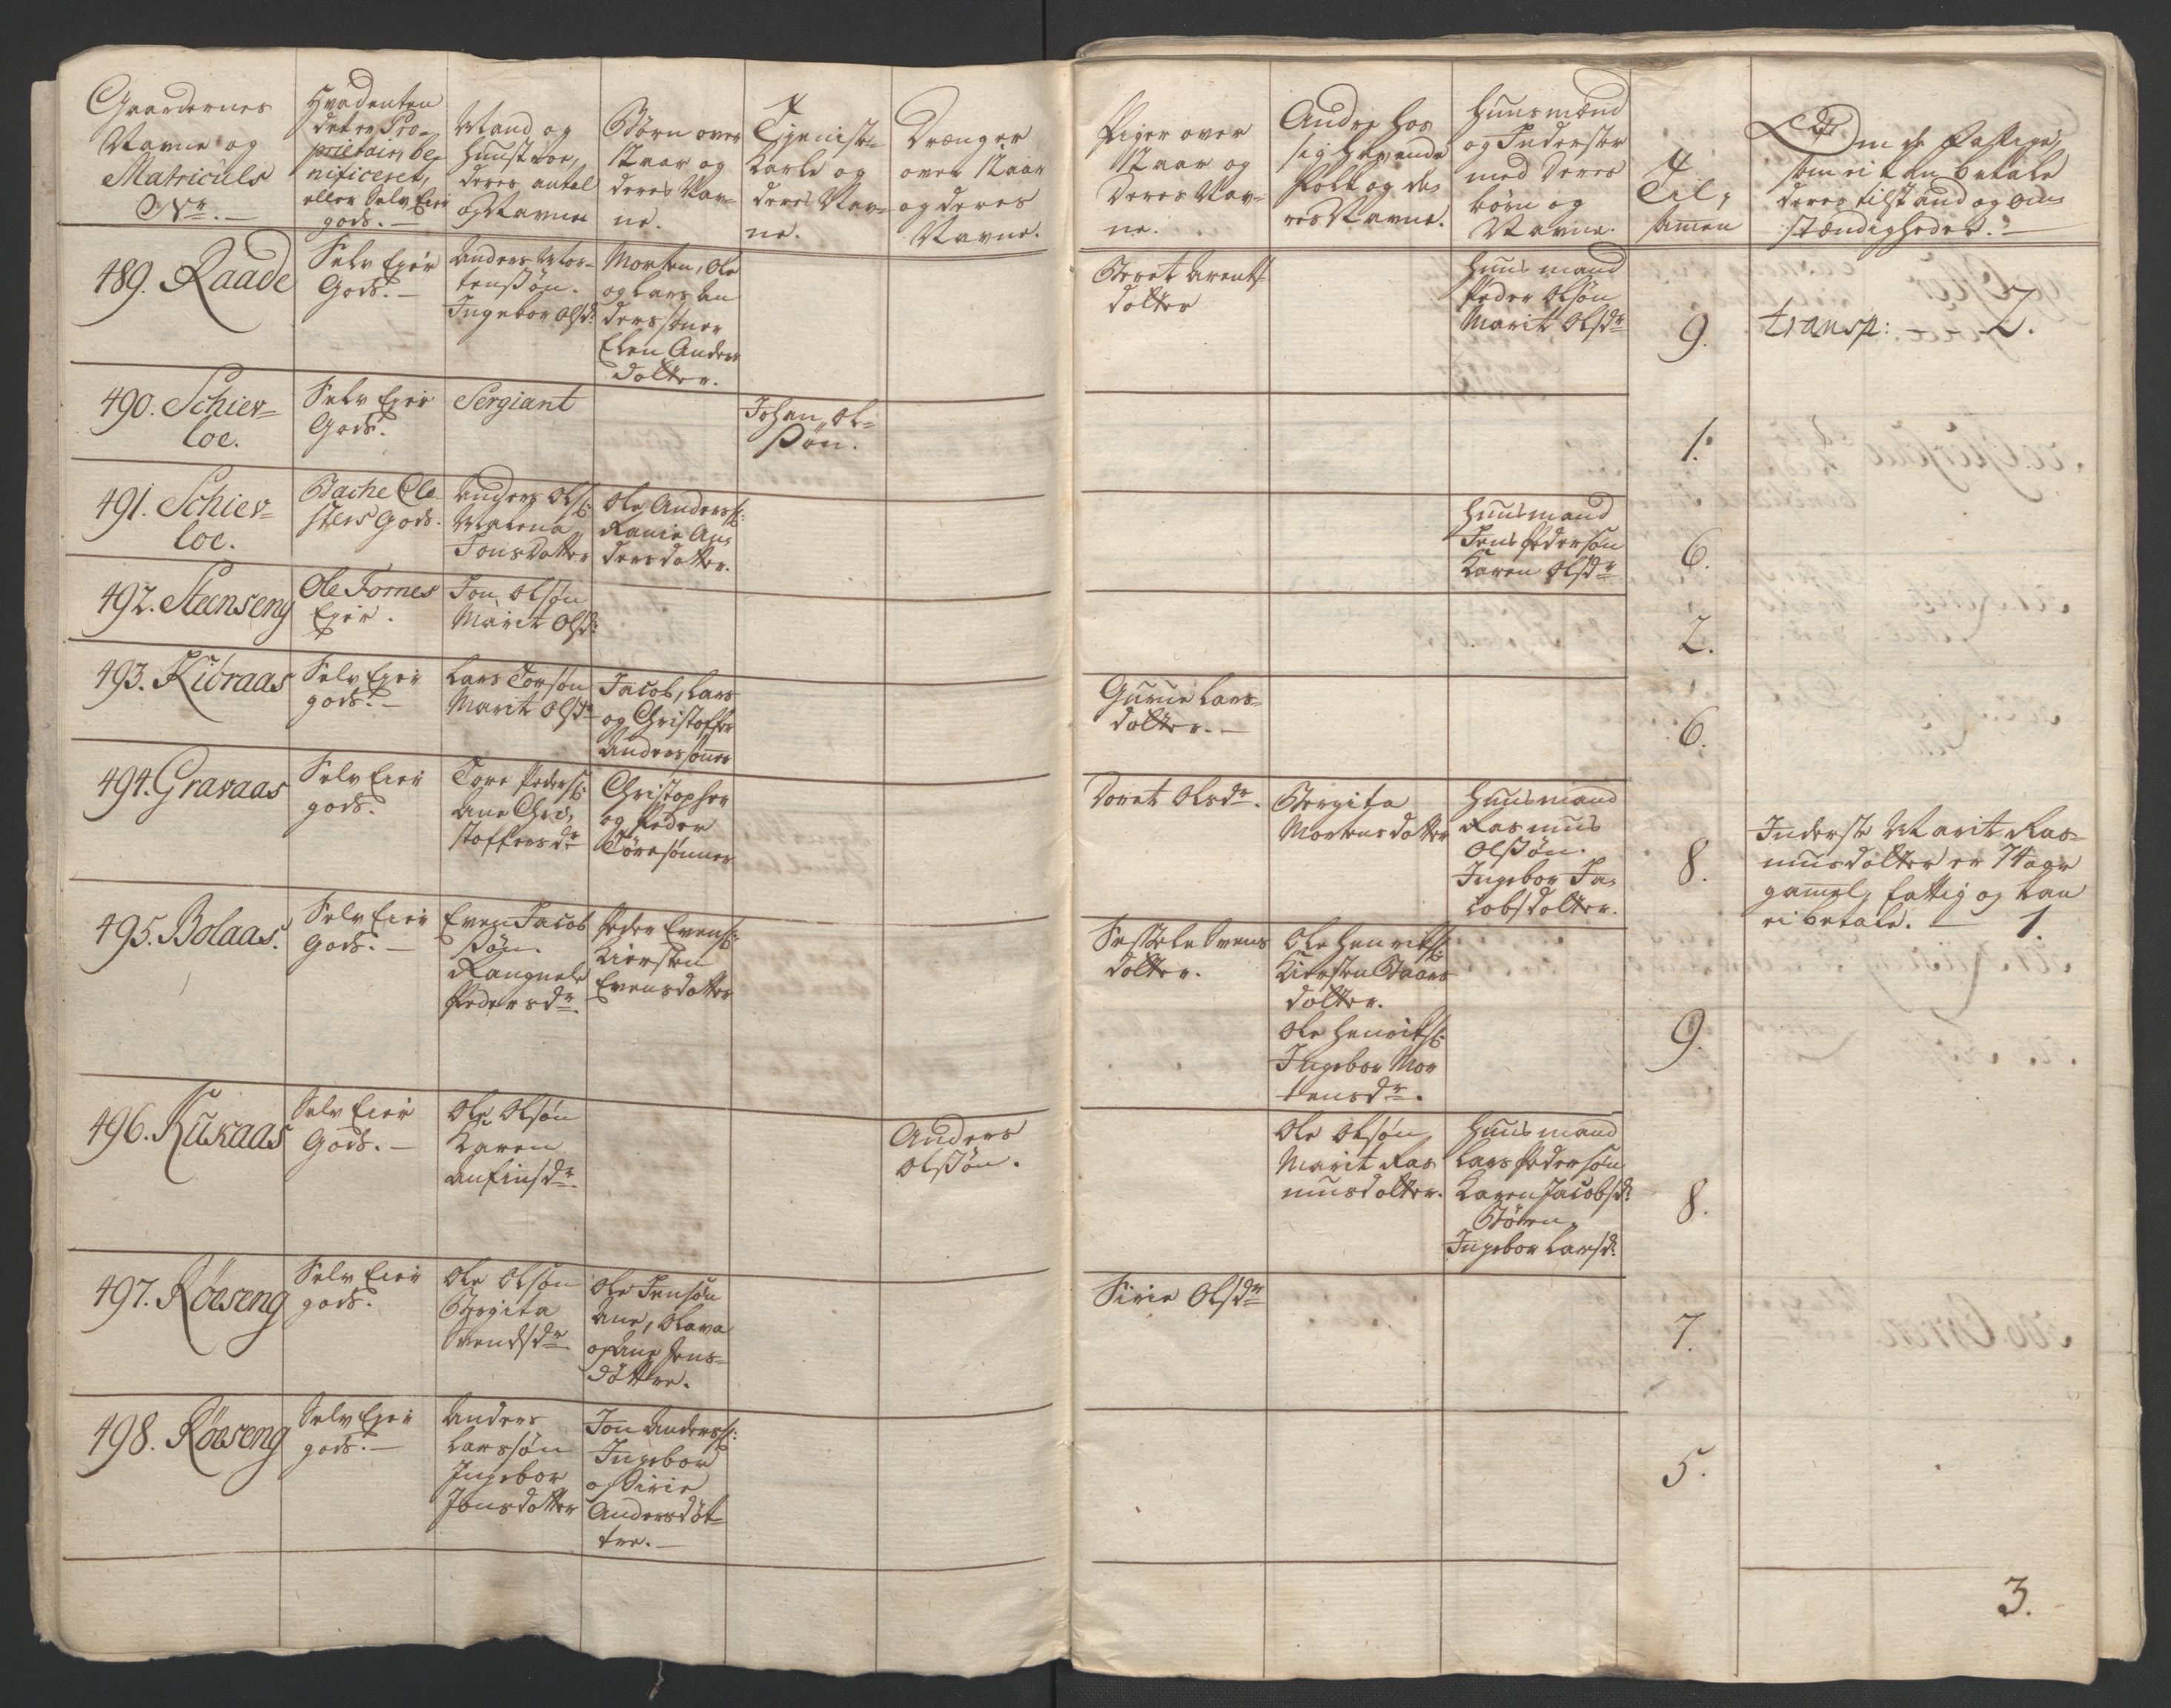 Gaardernes
Navne og
Matriculs
No. —
Hvadenten
det er Pro-
prietair, be-
nificeret,
eller Selv Eier
gods. —
Mand og
Huustroe,
deres antal
og Navne
Børn over
12 aar og
deres Nav-
ne.
Tjeniste
Karle og
deres Nav-
ne.
Drænger
over 12 aar
og deres
Navne.
Piger over
12 aar og
deres Nav-
ne.
Andre hos
sig havende
folk og de-
res Navne.
Huusmænd
og Inderster
med deres
børn og
Navne.
Til-
samen
Om de fattige,
som ei kan betale
deres tilstand og om-
stændigheder. —
489. Raade
Selv Ejer
Gods. —
Anders Mor-
tensøn.
Ingebor Olsdr
Morten, Ole
og Lars An
derssøner
Elen Anders
dotter.
Beret Arents
dotter
Huusmand
Peder Olsøn
Marit Olsdr
9.
transp: — 2.
490. Schier-
loe.
Selv Ejer
Gods.
Sergiant
Johan Ol-
søn.
1.
491. Schier-
loe.
Bache Clo
sters Gods.
Anders Ols:
Malena
Jonsdatter
Ole Anders:
Ranie An-
dersdotter.
Huusmand
Jens Pedersøn
Karen Olsdr
6.
492. Steenseng
Ole Fornes
Ejer.
Jon Olsøn
Marit Olsdr
2.
493. Kibraas
Selv Ejer
gods. —
Lars Torsøn
Marit Olsdr
Jacob, Lars
og Christoffer
Anderssønner
Gurue Lars-
dotter. —
6.
494. Gravaas
Selv Eier
gods.
Tore Peders:
Ane Chri-
stoffersdr
Christopher
og Peder
Toresønner
Doret Olsdr.
Bergita
Mortensdotter
Huusmand
Rasmus
Olsøn.
Ingebor Ja-
cobsdotter.
8.
Inderste Marit Ras-
musdotter er 74 aar
gamel, fattig og kan
ei betale. — 1.
495. Bolaas.
Selv Eier
Gods. —
Even Jacob
søn.
Rangnele
Pedersdr.
Peder Evens:
Kiersten
Evensdotter
Sessele Svens
dotter.
Ole Henriks:
Kiersten Baars
dotter.
Ole Henriks:
Ingebor Mor
tensdr.
9.
496. Kuraas
Selv Eier
Gods. —
Ole Olsøn
Karen
Anfinsdr.
Anders
Olsøn.
Ole Olsøn
Marit Ras
musdotter.
Huusmand
Lars Pedersøn
Karen Jacobsdr
Børn.
Ingebor Larsdr
8.
497. Røeseng
Selv Eier
gods.
Ole Olsøn
Bergita
Svendsdr
Ole Jensøn
Ane, Olava
og Ane Jens-
døttre.
Sirie Olsdr
7.
498. Røeseng
Selv Ejer
gods. —
Anders
Larssøn
Ingebor
Jonsdotter
Jon Anders:
Ingebor
og Sirie
Andersdøt-
tre. —
5.
3.